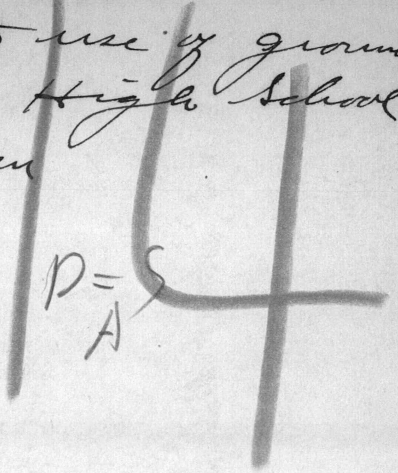 use of groun
High School
14
D = S
A